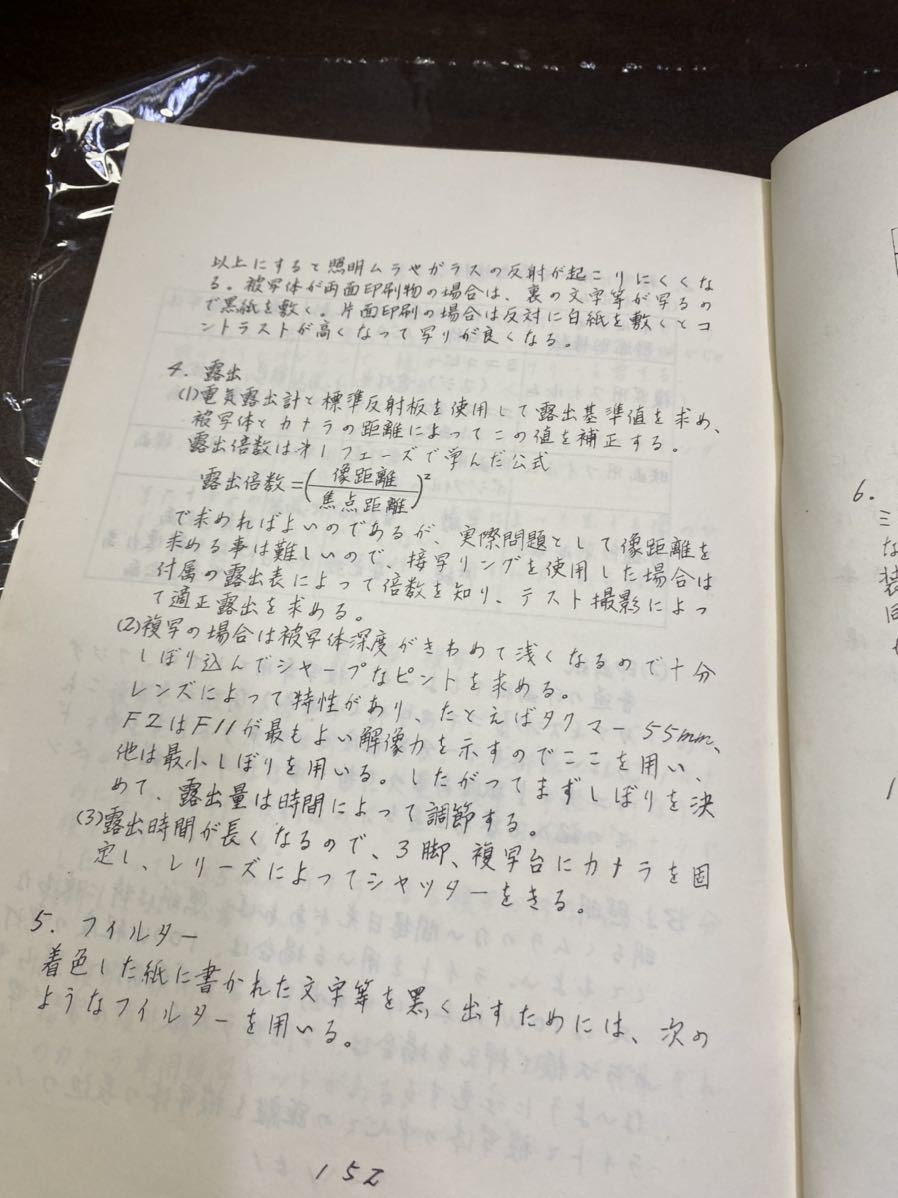 以上にすると照明ムラやガラスの反射が起こりにくくな
る。被写体が両面印刷物の場合は、裏の文字等が写るの
で黒紙を敷く。片面印刷の場合は反対に白紙を敷くとコ
ントラストが高くなって写りが良くなる。
4. 露出
(1)電気露出計と標準反射板を使用して露出基準値を求め、
被写体とカメラの距離によってこの値を補正する。
露出倍数は才1フェーズで学んだ公式
露出倍数=(像距離/焦点距離)²
で求めればよいのであるが、実際問題として像距離を
求める事は難しいので、接写リングを使用した場合は
付属の露出表によって倍数を知り、テスト撮影によっ
て適正露出を求める。
(2)複写の場合は被写体深度がきわめて浅くなるので十分
しぼり込んでシャープなピントを求める。
レンズによって特性があり、たとえばタクマー55mm、
F2はF11が最もよい解像力を示すのでここを用い、
他は最小しぼりを用いる。したがってまずしぼりを決
めて、露出量は時間によって調節する。
(3)露出時間が長くなるので、3脚、複写台にカメラを固
定し、レリーズによってシャッターをきる。
5. フィルター
着色した紙に書かれた文字等を黒く出すためには、次の
ようなフィルターを用いる。
152
6.
ミ
な
装
同